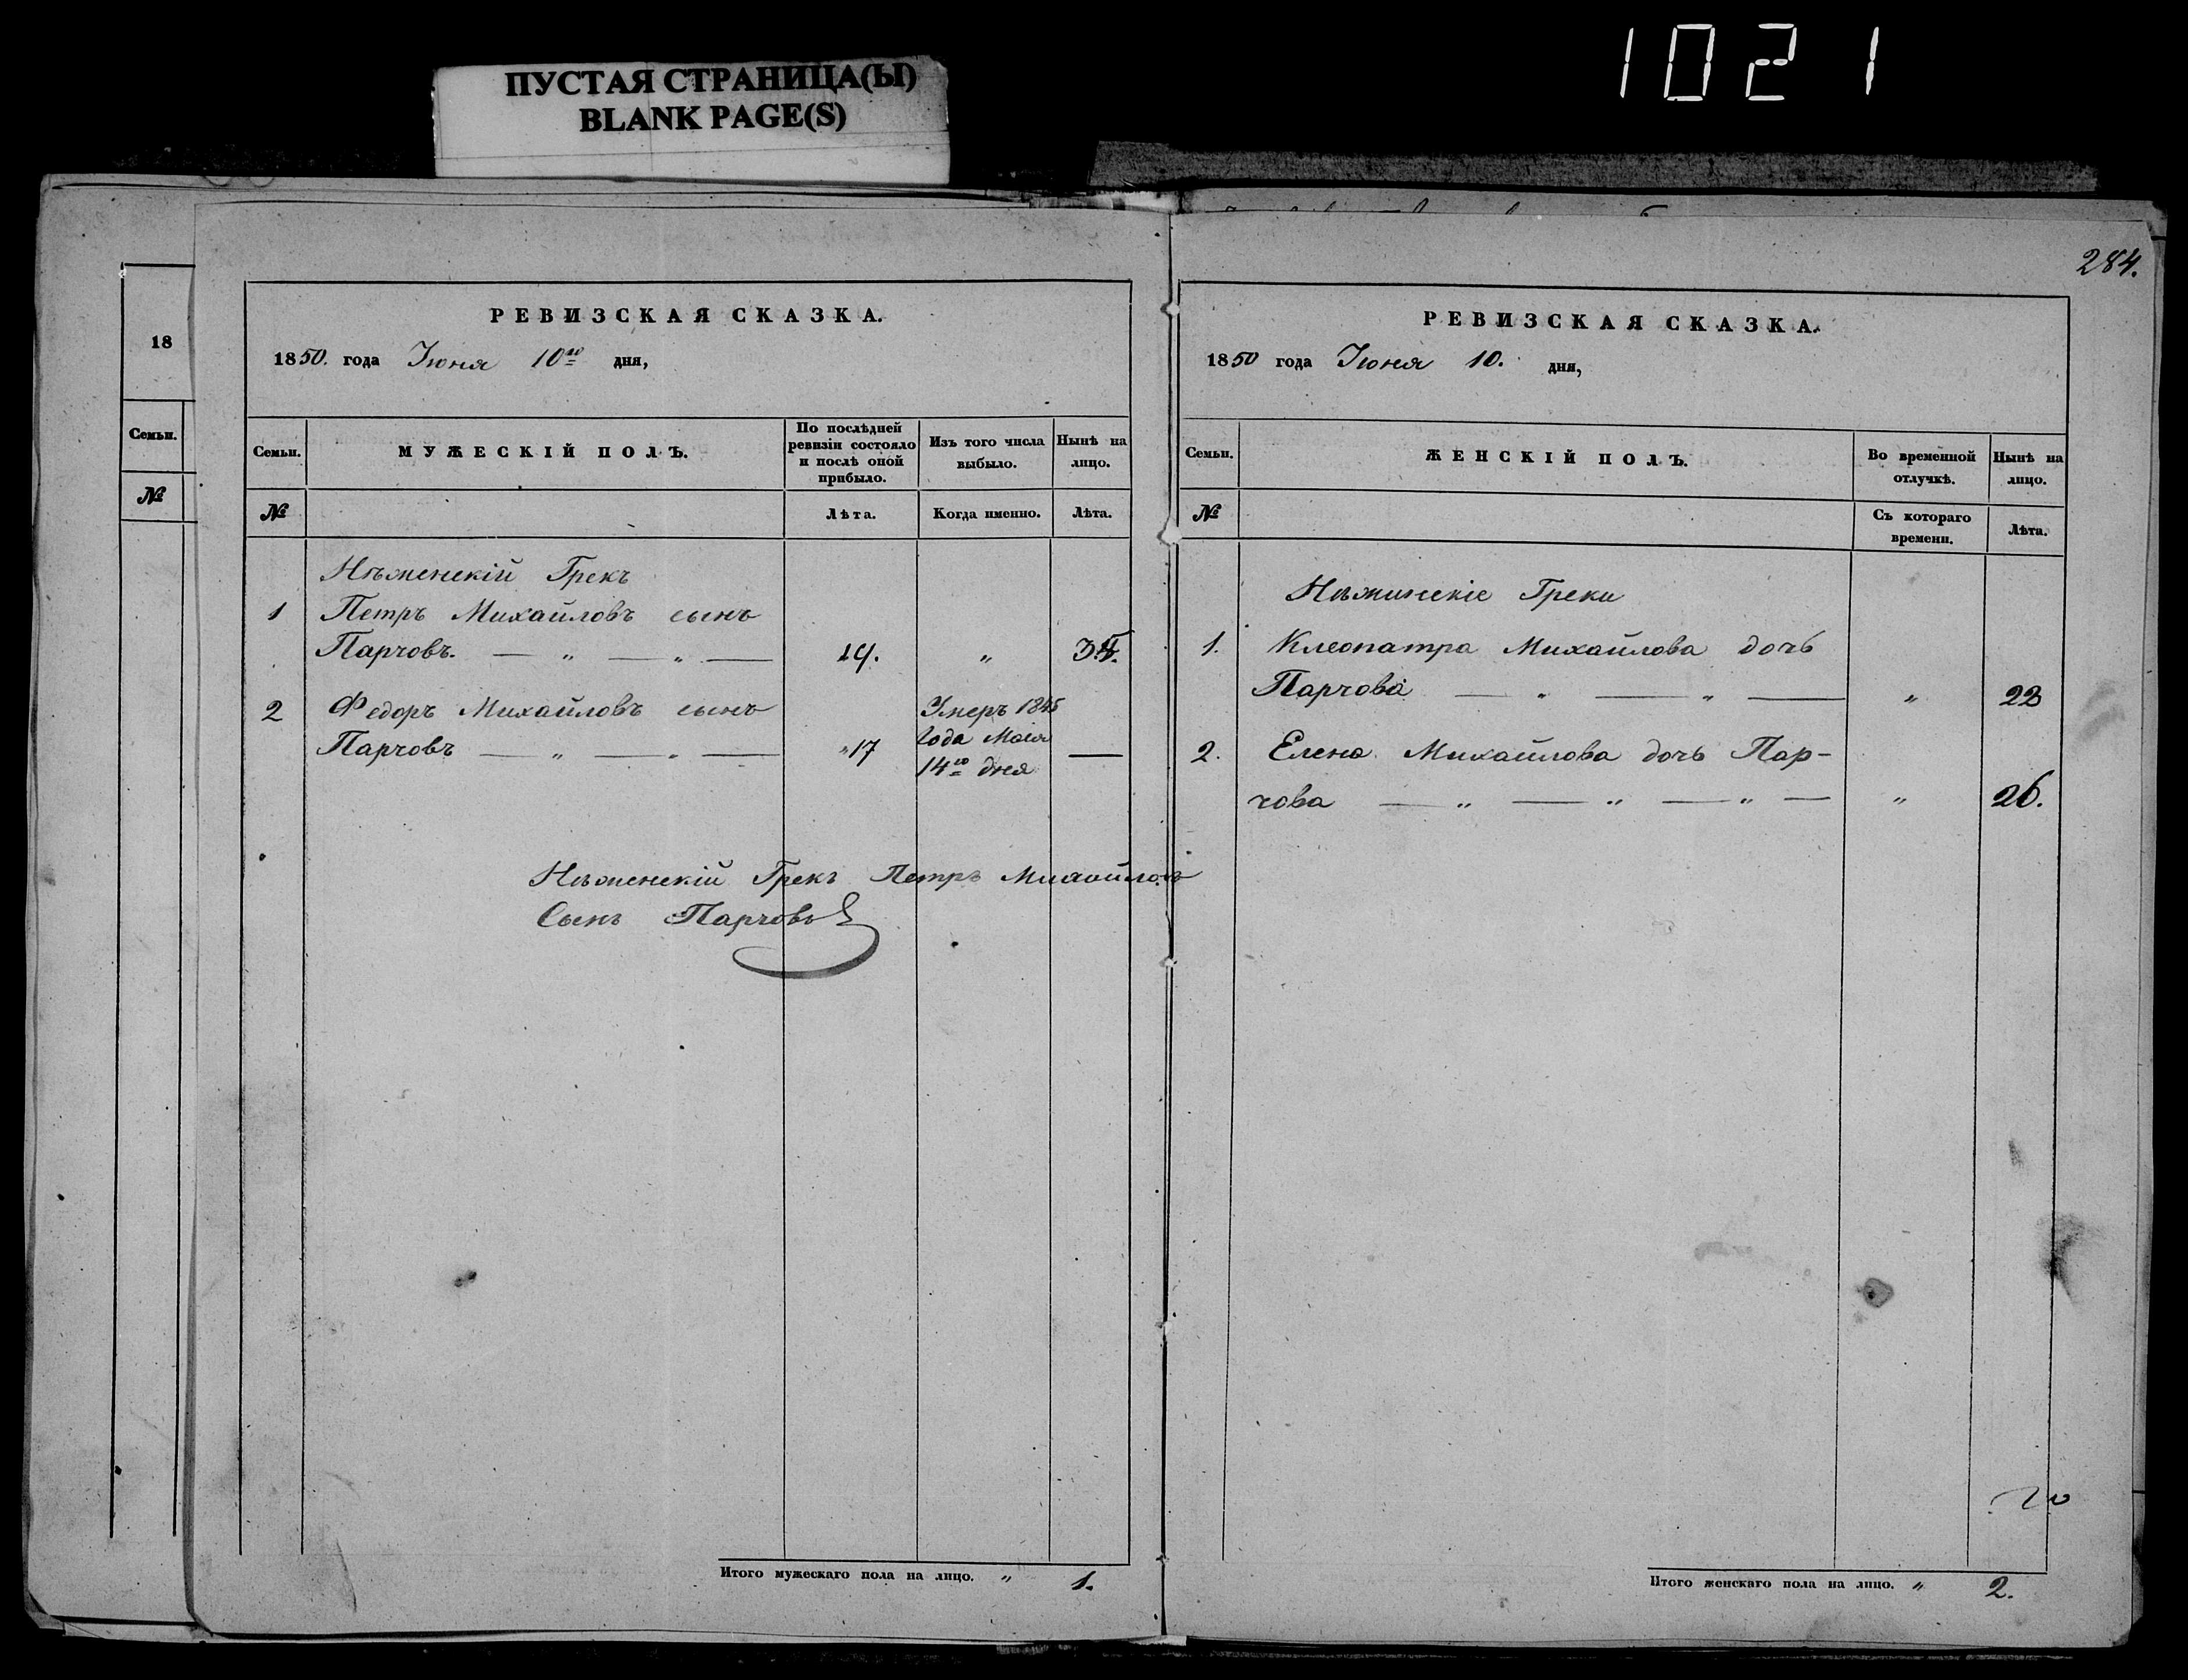 ПУСТАЯ СТРАНИЦА(Ы)
BLANK PAGE(S)
1021
284.
18
Семьи.
№
РЕВИЗСКАЯ СКАЗКА.
1850. года Іюня 10го дня,
Семьи.
МУЖЕСКІЙ ПОЛЪ.
По послѣдней ревизіи состояло и послѣ оной прибыло.
Изъ того числа выбыло.
Нынѣ на лицо.
№
Лѣта.
Когда именно.
Лѣта.
Нѣженскій Грекъ
1 Петръ Михайловъ сынъ
Парчовъ. — „ — „ — 19. „
2 Федоръ Михайловъ сынъ Умеръ 1845
Парчовъ — „ — „ — „17 года Маія —
14го дня
Нѣженскій Грекъ Петръ Михайловъ
Сынъ Парчовъ
Итого мужескаго пола на лицо. „ 1.
РЕВИЗСКАЯ СКАЗКА.
1850 года Іюня 10. дня,
Семьи.
ЖЕНСКІЙ ПОЛЪ.
Во временной отлучкѣ.
Нынѣ на лицо.
№
Съ котораго времени.
Лѣта.
Нѣжинскіе Греки
1. Клеопатра Михайлова дочь
Парчова — „ — „ — „ 22
2. Елена Михайлова дочь Пар-
чова — „ — „ — „ — „ 26.
Итого женскаго пола на лицо. „ 2.